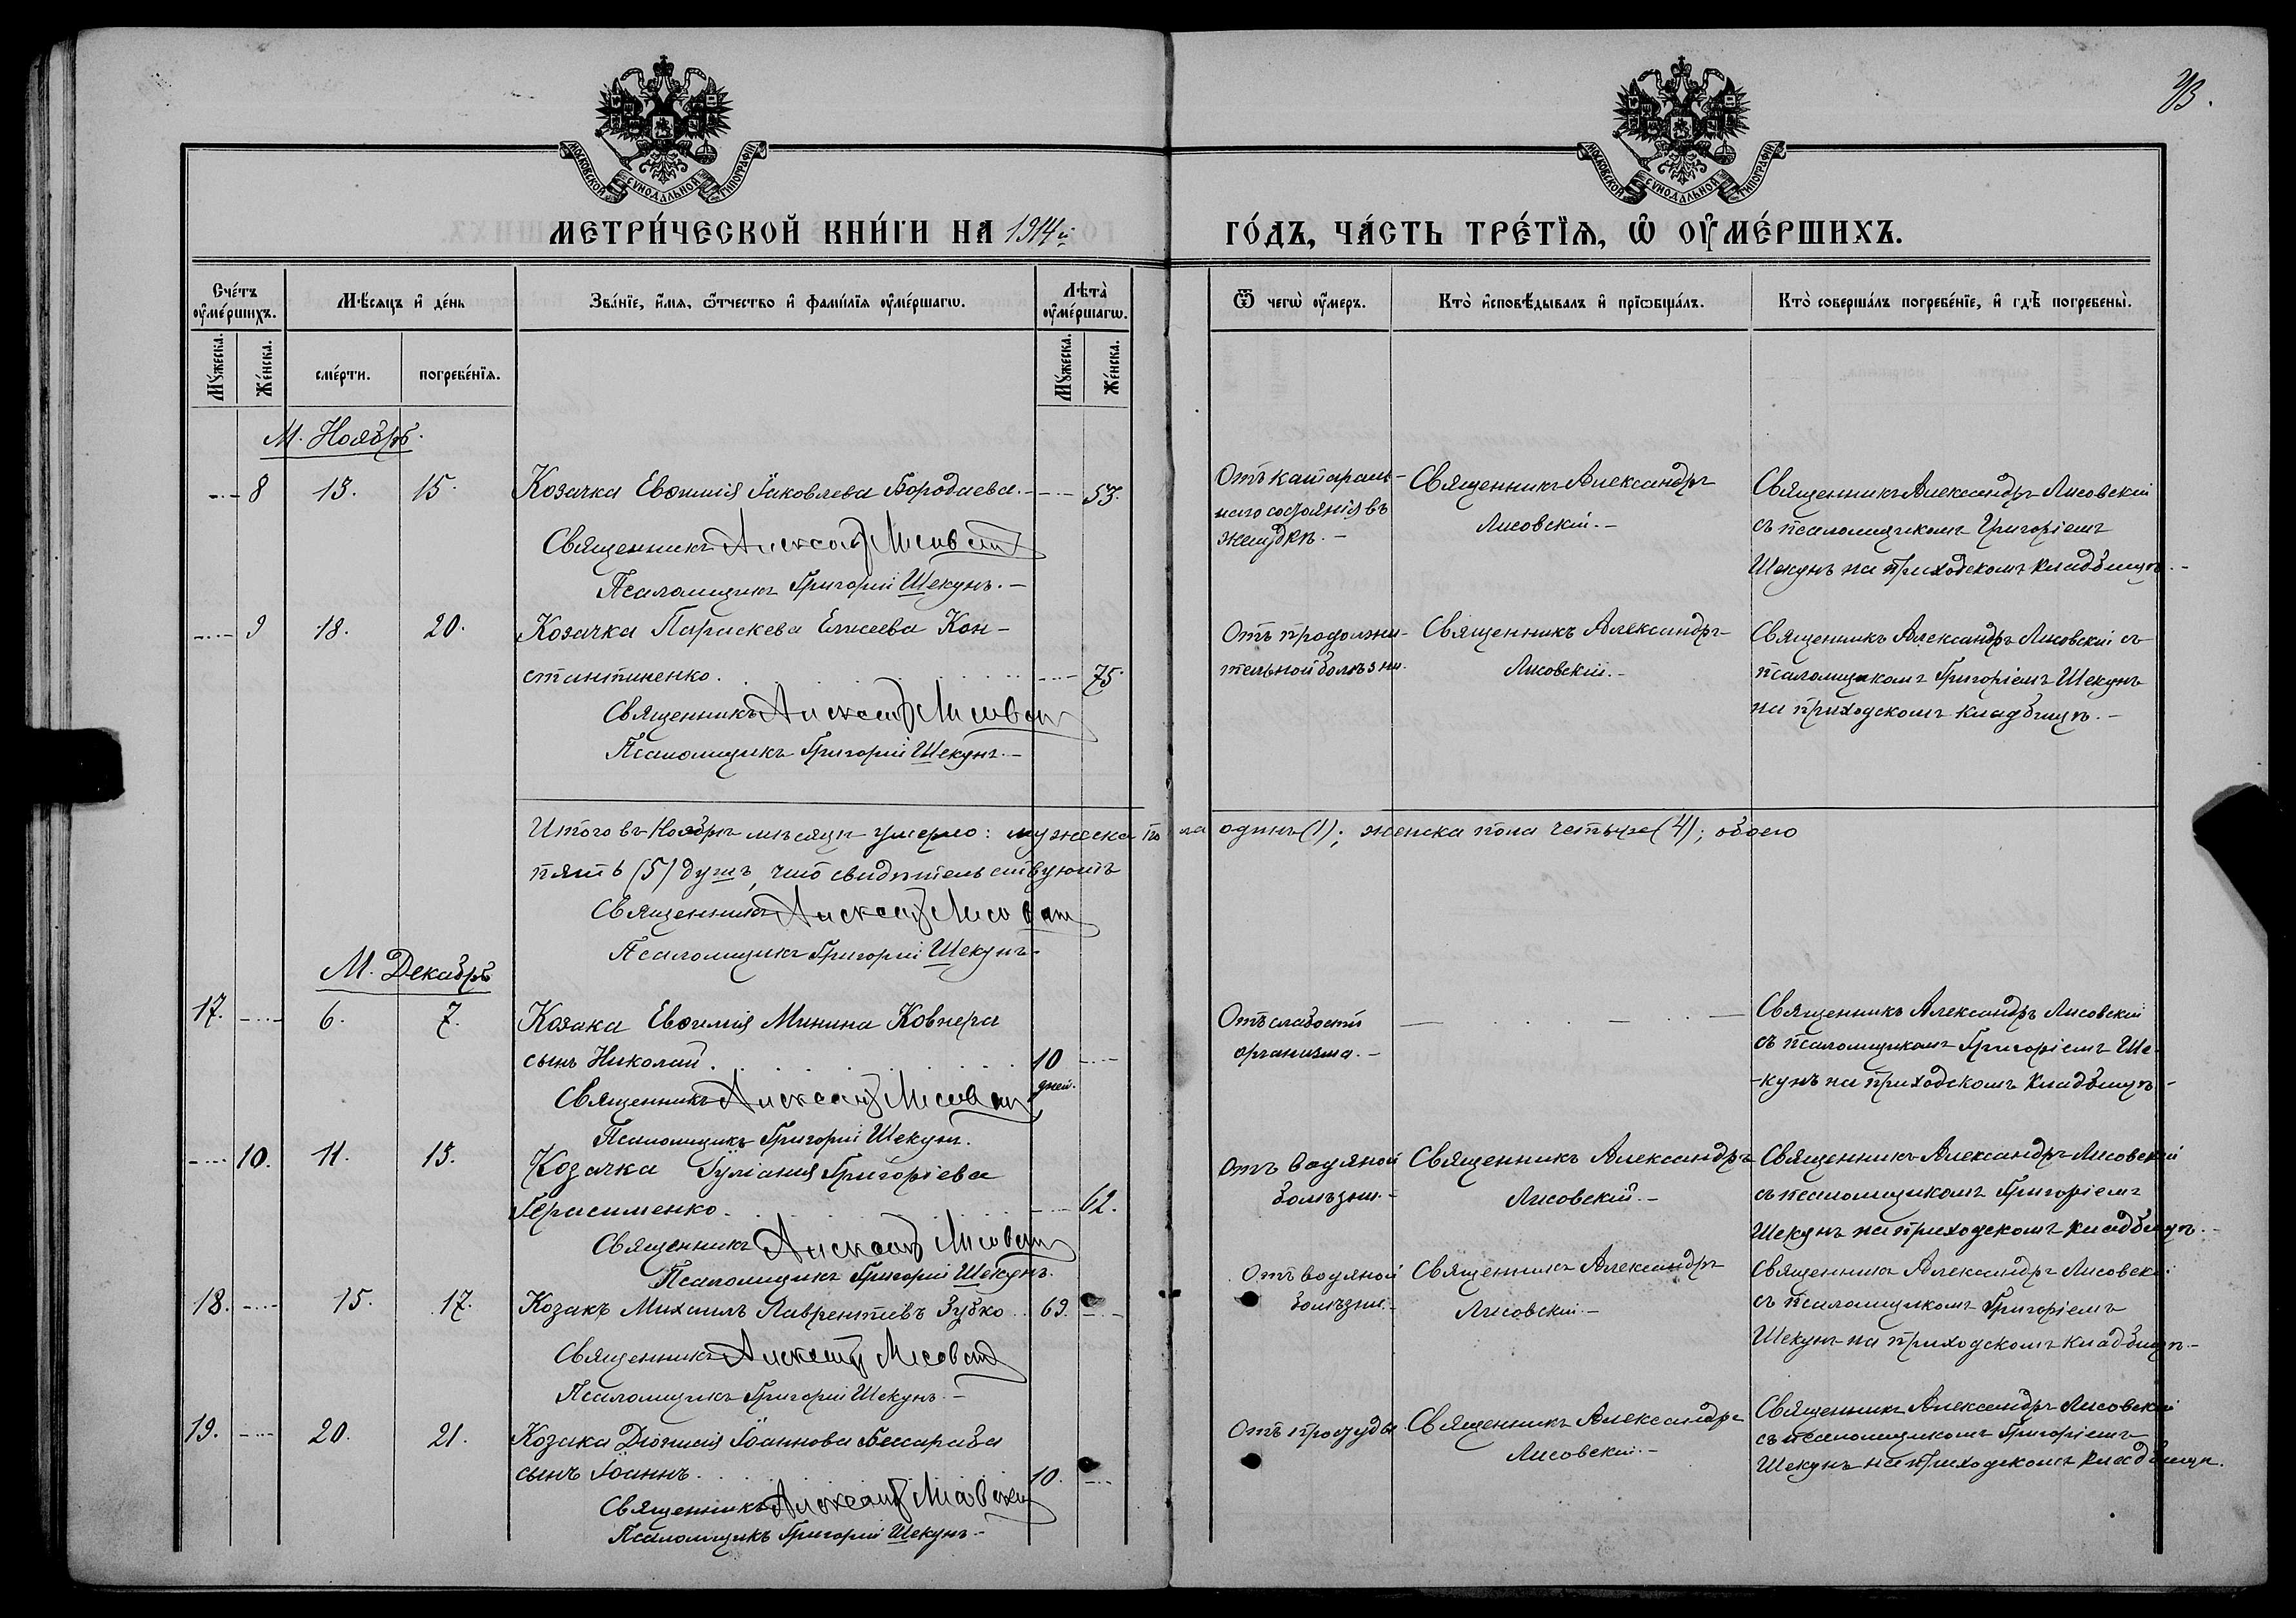 93.
МОСКОВСКОЙ СУНОДАЛЬНОЙ ТИПОГРАФІИ
МОСКОВСКОЙ СУНОДАЛЬНОЙ ТИПОГРАФІИ
МЕТРИ́ЧЕСКОЙ КНИ́ГИ НА 1914й
ГО́ДЪ, ЧА́СТЬ ТРЕ́ТІѦ, Ѡ ОУМЕ́РШИХЪ.
Сче́тъ оуме́ршихъ.
Мѣ́сяцъ и де́нь
Зва́ніе, и́мя, ѻ́тчество и фамі́лія оуме́ршагѡ.
Лѣта̀ оуме́ршагѡ.
Ѿ чегѡ̀ оу́меръ.
Кто̀ исповѣ́дывалъ и пріѡбща́лъ.
Кто̀ соверша́лъ погребе́ніе, и гдѣ̀ погребены̀.
Му́жеска.
Же́нска.
сме́рти.
погребе́нія.
Му́жеска.
Же́нска.
М. Ноябрь.
8 13. 15. Козачка Евѳимія Іаковлева Бородаева. 53.
Священникъ Александръ Лисовскій
Псаломщикъ Григорій Шекунъ.
Отъ катараль-
наго состоянія въ
желудкѣ.
Священникъ Александръ
Лисовскій.
Священникъ Александръ Лисовскій
съ псаломщикомъ Григоріемъ
Шекунъ на приходскомъ кладбищѣ.
9 18. 20. Козачка Параскева Елисеева Кон-
стантиненко. 75.
Священникъ Александръ Лисовскій
Псаломщикъ Григорій Шекунъ.
Отъ продолжи-
тельной болѣзни.
Священникъ Александръ
Лисовскій.
Священникъ Александръ Лисовскій съ
псаломщикомъ Григоріемъ Шекунъ
на приходскомъ кладбищѣ.
Итого въ Ноябрѣ мѣсяцѣ умерло: мужеска пола одинъ (1); женска пола четыре (4); обоего
пять (5) душъ, что свидѣтельствуютъ
Священникъ Александръ Лисовскій
Псаломщикъ Григорій Шекунъ.
М. Декабрь
17. 6. 7. Козака Евѳимія Минина Ковнера
сынъ Николай. 10
дней.
Священникъ Александръ Лисовскій
Псаломщикъ Григорій Шекунъ.
Отъ слабости
организма.
Священникъ Александръ Лисовскій
съ псаломщикомъ Григоріемъ Ше-
-кунъ на приходскомъ кладбищѣ.
10. 11. 13. Козачка Іуліанія Григоріева
Герасименко. 62.
Священникъ Александръ Лисовскій
Псаломщикъ Григорій Шекунъ.
Отъ водяной
болѣзни.
Священникъ Александръ
Лисовскій.
Священникъ Александръ Лисовскій
съ псаломщикомъ Григоріемъ
Шекунъ на приходскомъ кладбищѣ.
18. 15. 17. Козакъ Михаилъ Лаврентіевъ Зубко 69.
Священникъ Александръ Лисовскій
Псаломщикъ Григорій Шекунъ.
Отъ водяной
болѣзни.
Священникъ Александръ
Лисовскій.
Священникъ Александръ Лисовскій
съ псаломщикомъ Григоріемъ
Шекунъ на приходскомъ кладбищѣ.
19. 20. 21. Козака Діонисія Іоаннова Бессараба
сынъ Іоаннъ. 10.
Священникъ Александръ Лисовскій
Псаломщикъ Григорій Шекунъ.
Отъ простуды
Священникъ Александръ
Лисовскій.
Священникъ Александръ Лисовскій
съ псаломщикомъ Григоріемъ
Шекунъ на приходскомъ кладбищѣ.